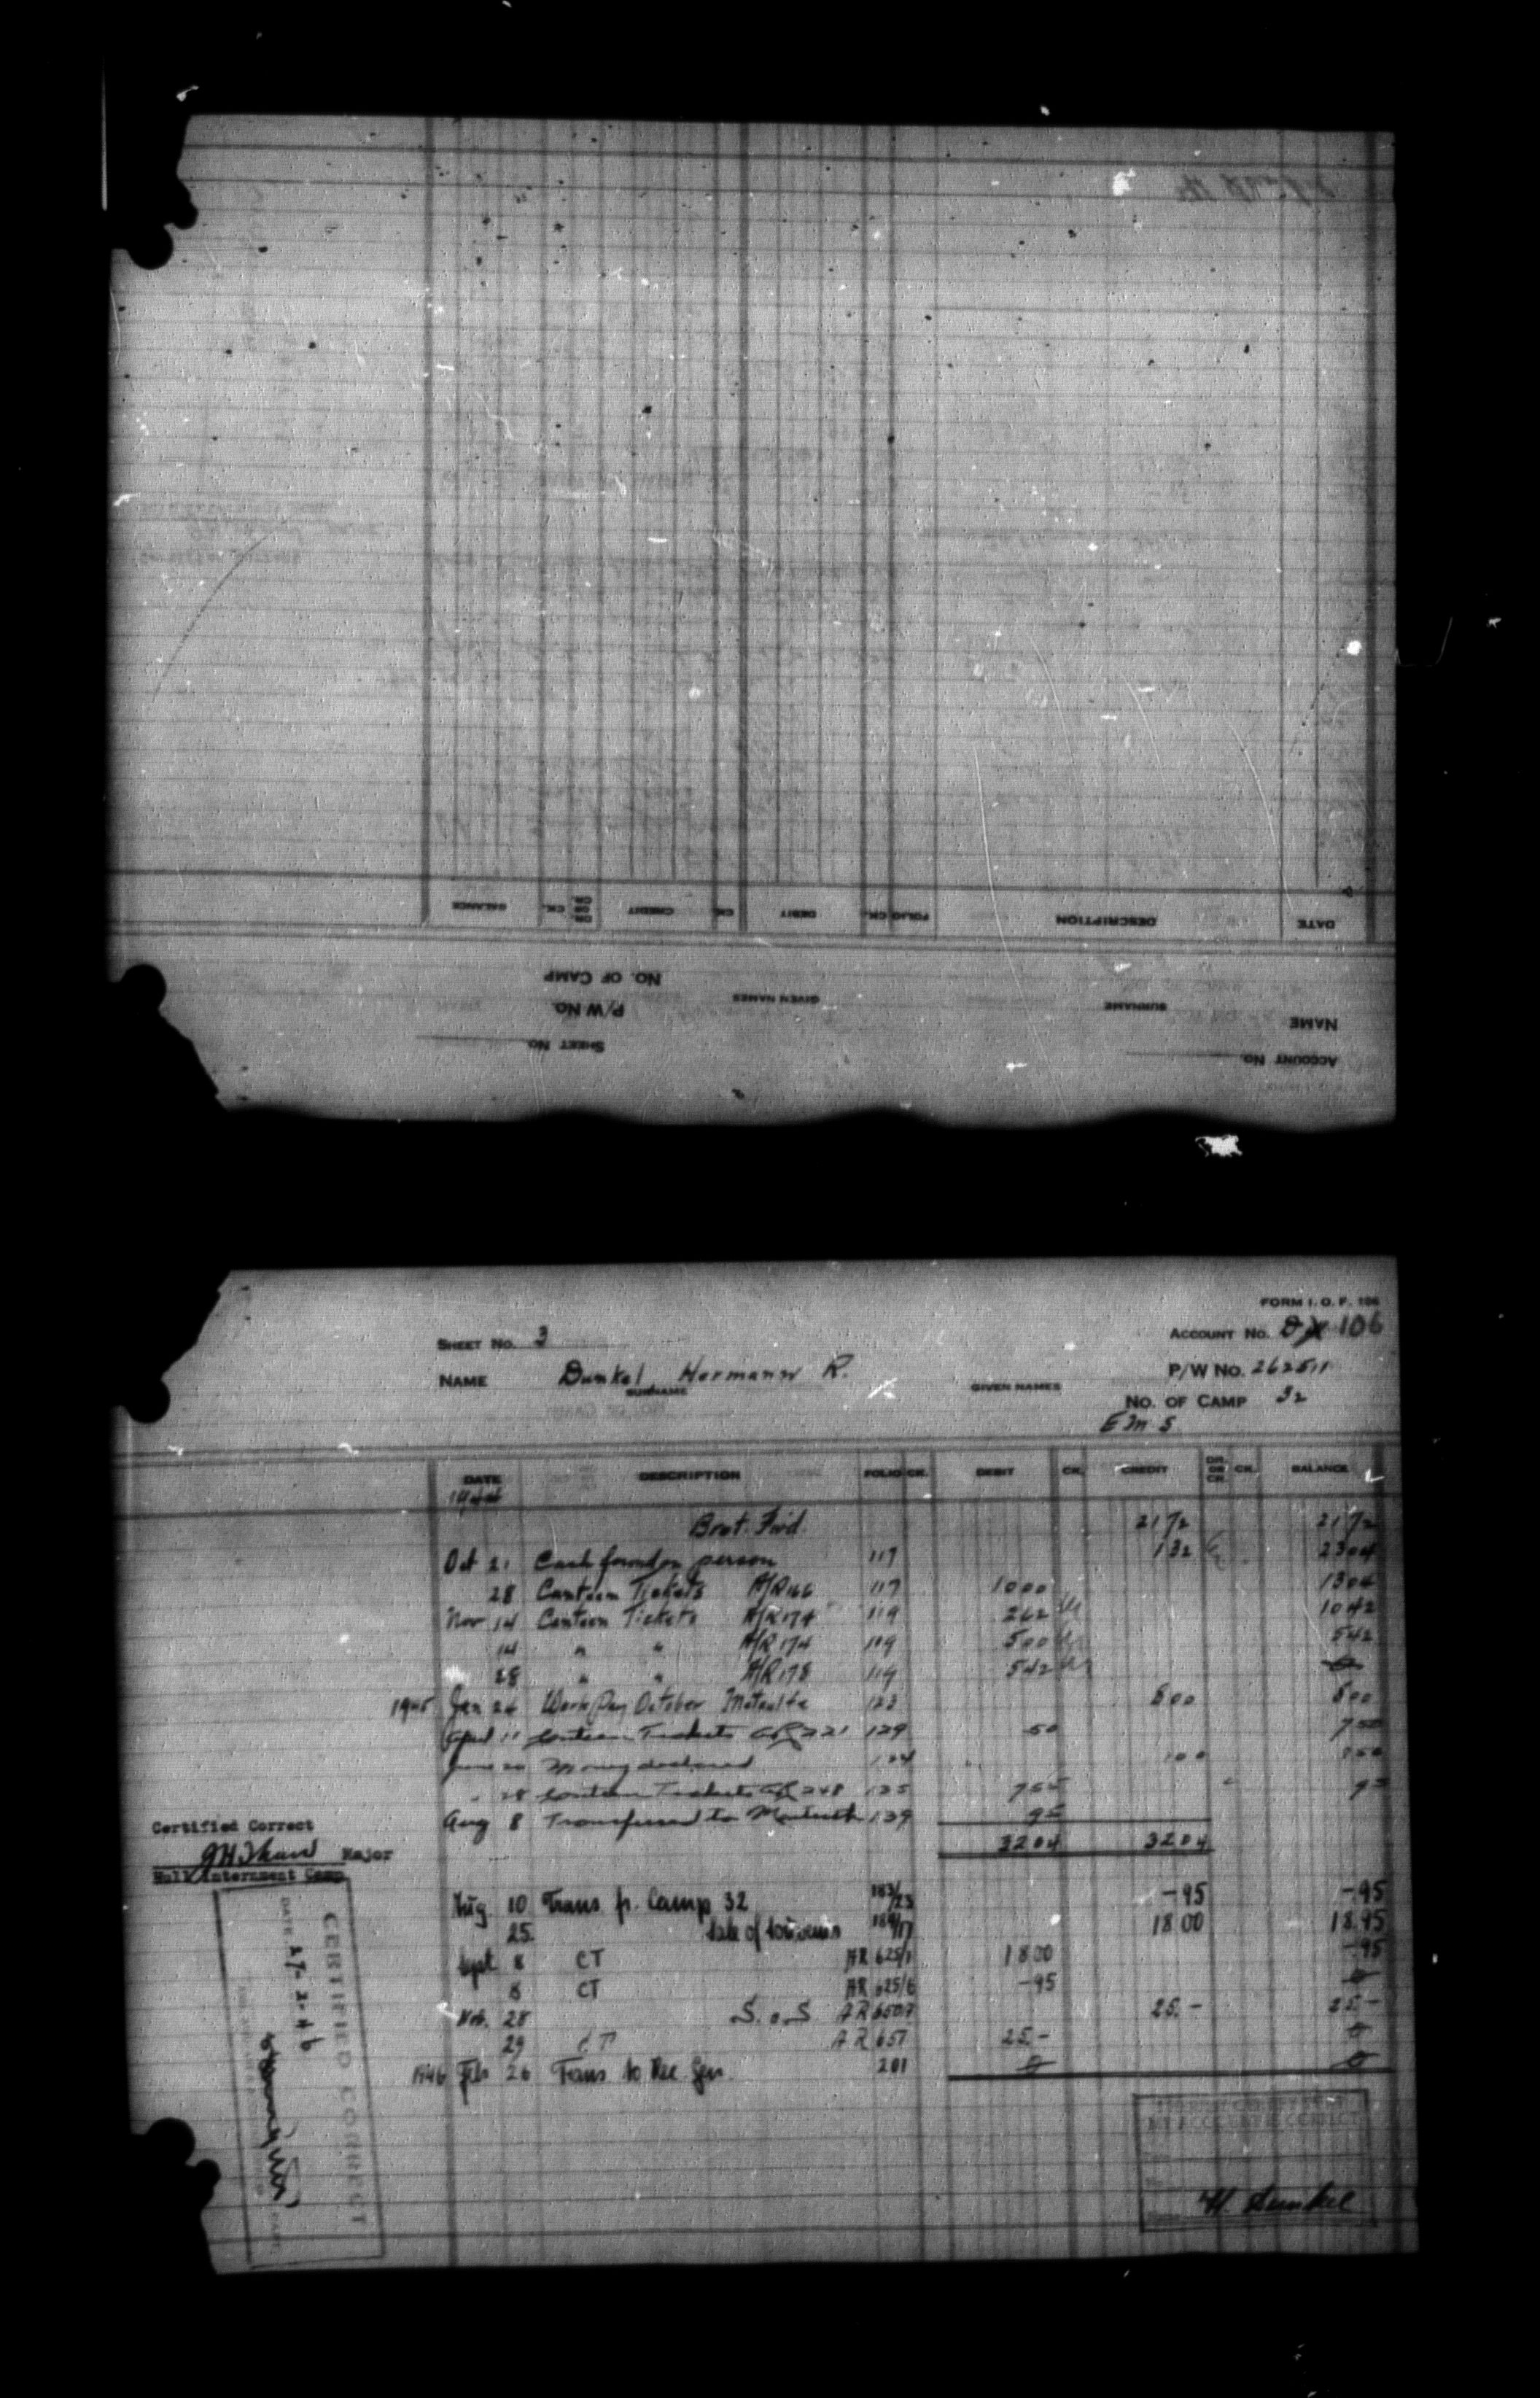 DATE
DESCRIPTION
FOLIO CK.
DEBIT
CK.
CREDIT
DR. OR CR.
CK.
BALANCE
NAME
SURNAME
GIVEN NAMES
P/W NO.
NO. OF CAMP
ACCOUNT NO.
SHEET NO.
FORM I. O. F. 106
SHEET NO. 3 ACCOUNT NO. 106
NAME Dunkel Hermann R. P/W NO. 262511
SURNAME GIVEN NAMES
NO. OF CAMP 32
E M S
DATE DESCRIPTION FOLIO CK. DEBIT CK. CREDIT DR. OR CR. CK. BALANCE
1944
Brot. Fwd. 2172 2172
Oct 21 Cash found on person 117 132 2304
28 Canteen Tickets A/R166 117 1000 1304
Nov 14 Canteen Tickets A/R174 119 262 1042
14 " " A/R174 119 500 542
28 " " A/R178 119 542 0
1945 Jan 24 Work Pay October 122 800 800
April 11 Canteen Tickets AR221 129 50 750
June 20 Money declared 134 100 850
" 28 Canteen Tickets AR248 135 755 95
Aug 8 Transferred to Monteith 139 95
3204 3204
Certified Correct
Major
Hull Internment Camp
Aug. 10 Trans fr. Camp 32 183/23 -95 -95
25 Sale of Souvenirs 184/17 18 00 18.95
Sept 8 CT AR 625/1 18 00 -95
8 CT AR 625/6 -95 0
Nov. 28 S.o.S AR 25.- 25.-
29 CT AR 657 25.- 0
1946 Feb 26 Trans to Rec Gen. 201 0 0
CERTIFIED CORRECT
DATE 27-2-46
MY ACCOUNT IS CORRECT
H. Dunkel